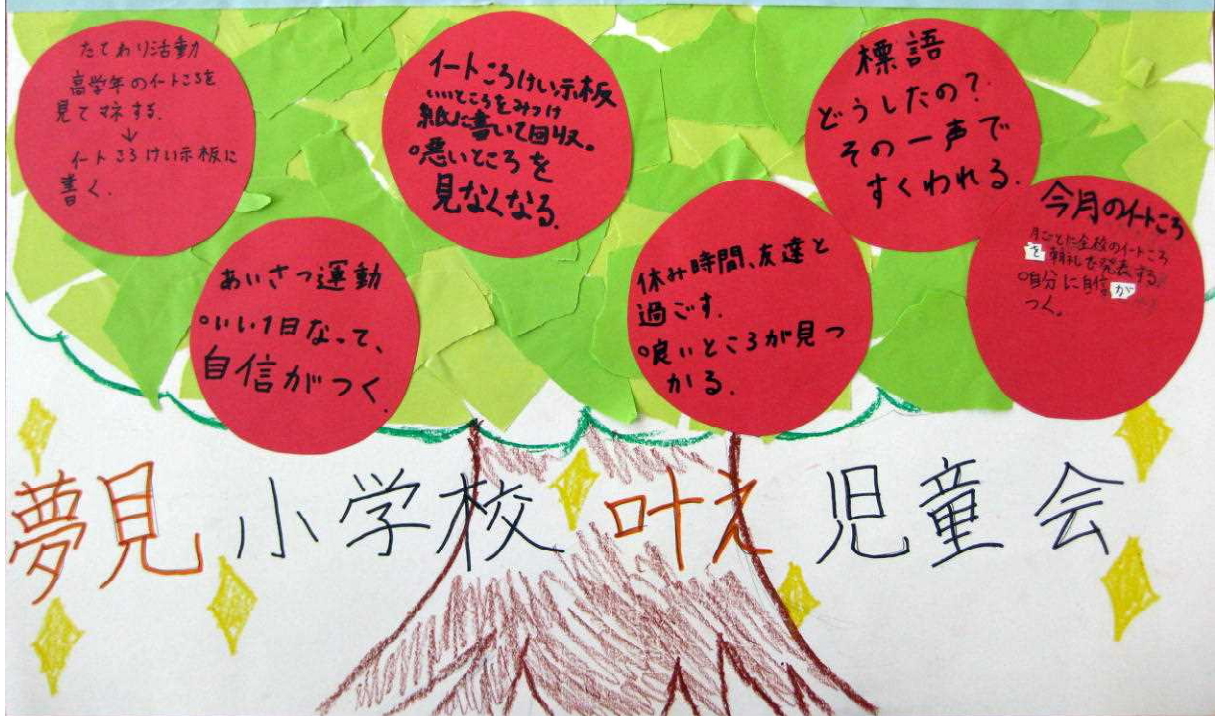 たてわり活動
高学年のイートころを
見てマネする.
↓
イートころけい示板に
書く.
イートころけい示板
いいところをみつけ
紙に書いて回収。
○悪いところを
見なくなる.
標語
どうしたの?
その一声で
すくわれる.
あいさつ運動
○いい1日なって、
自信がつく.
休み時間、友達と
過ごす.
○良いところが見つ
かる.
今月のイートころ
月ごとに全校のイートころ
を朝礼を発表する.
○自分に自信が
つく。
夢見小学校 叶え児童会